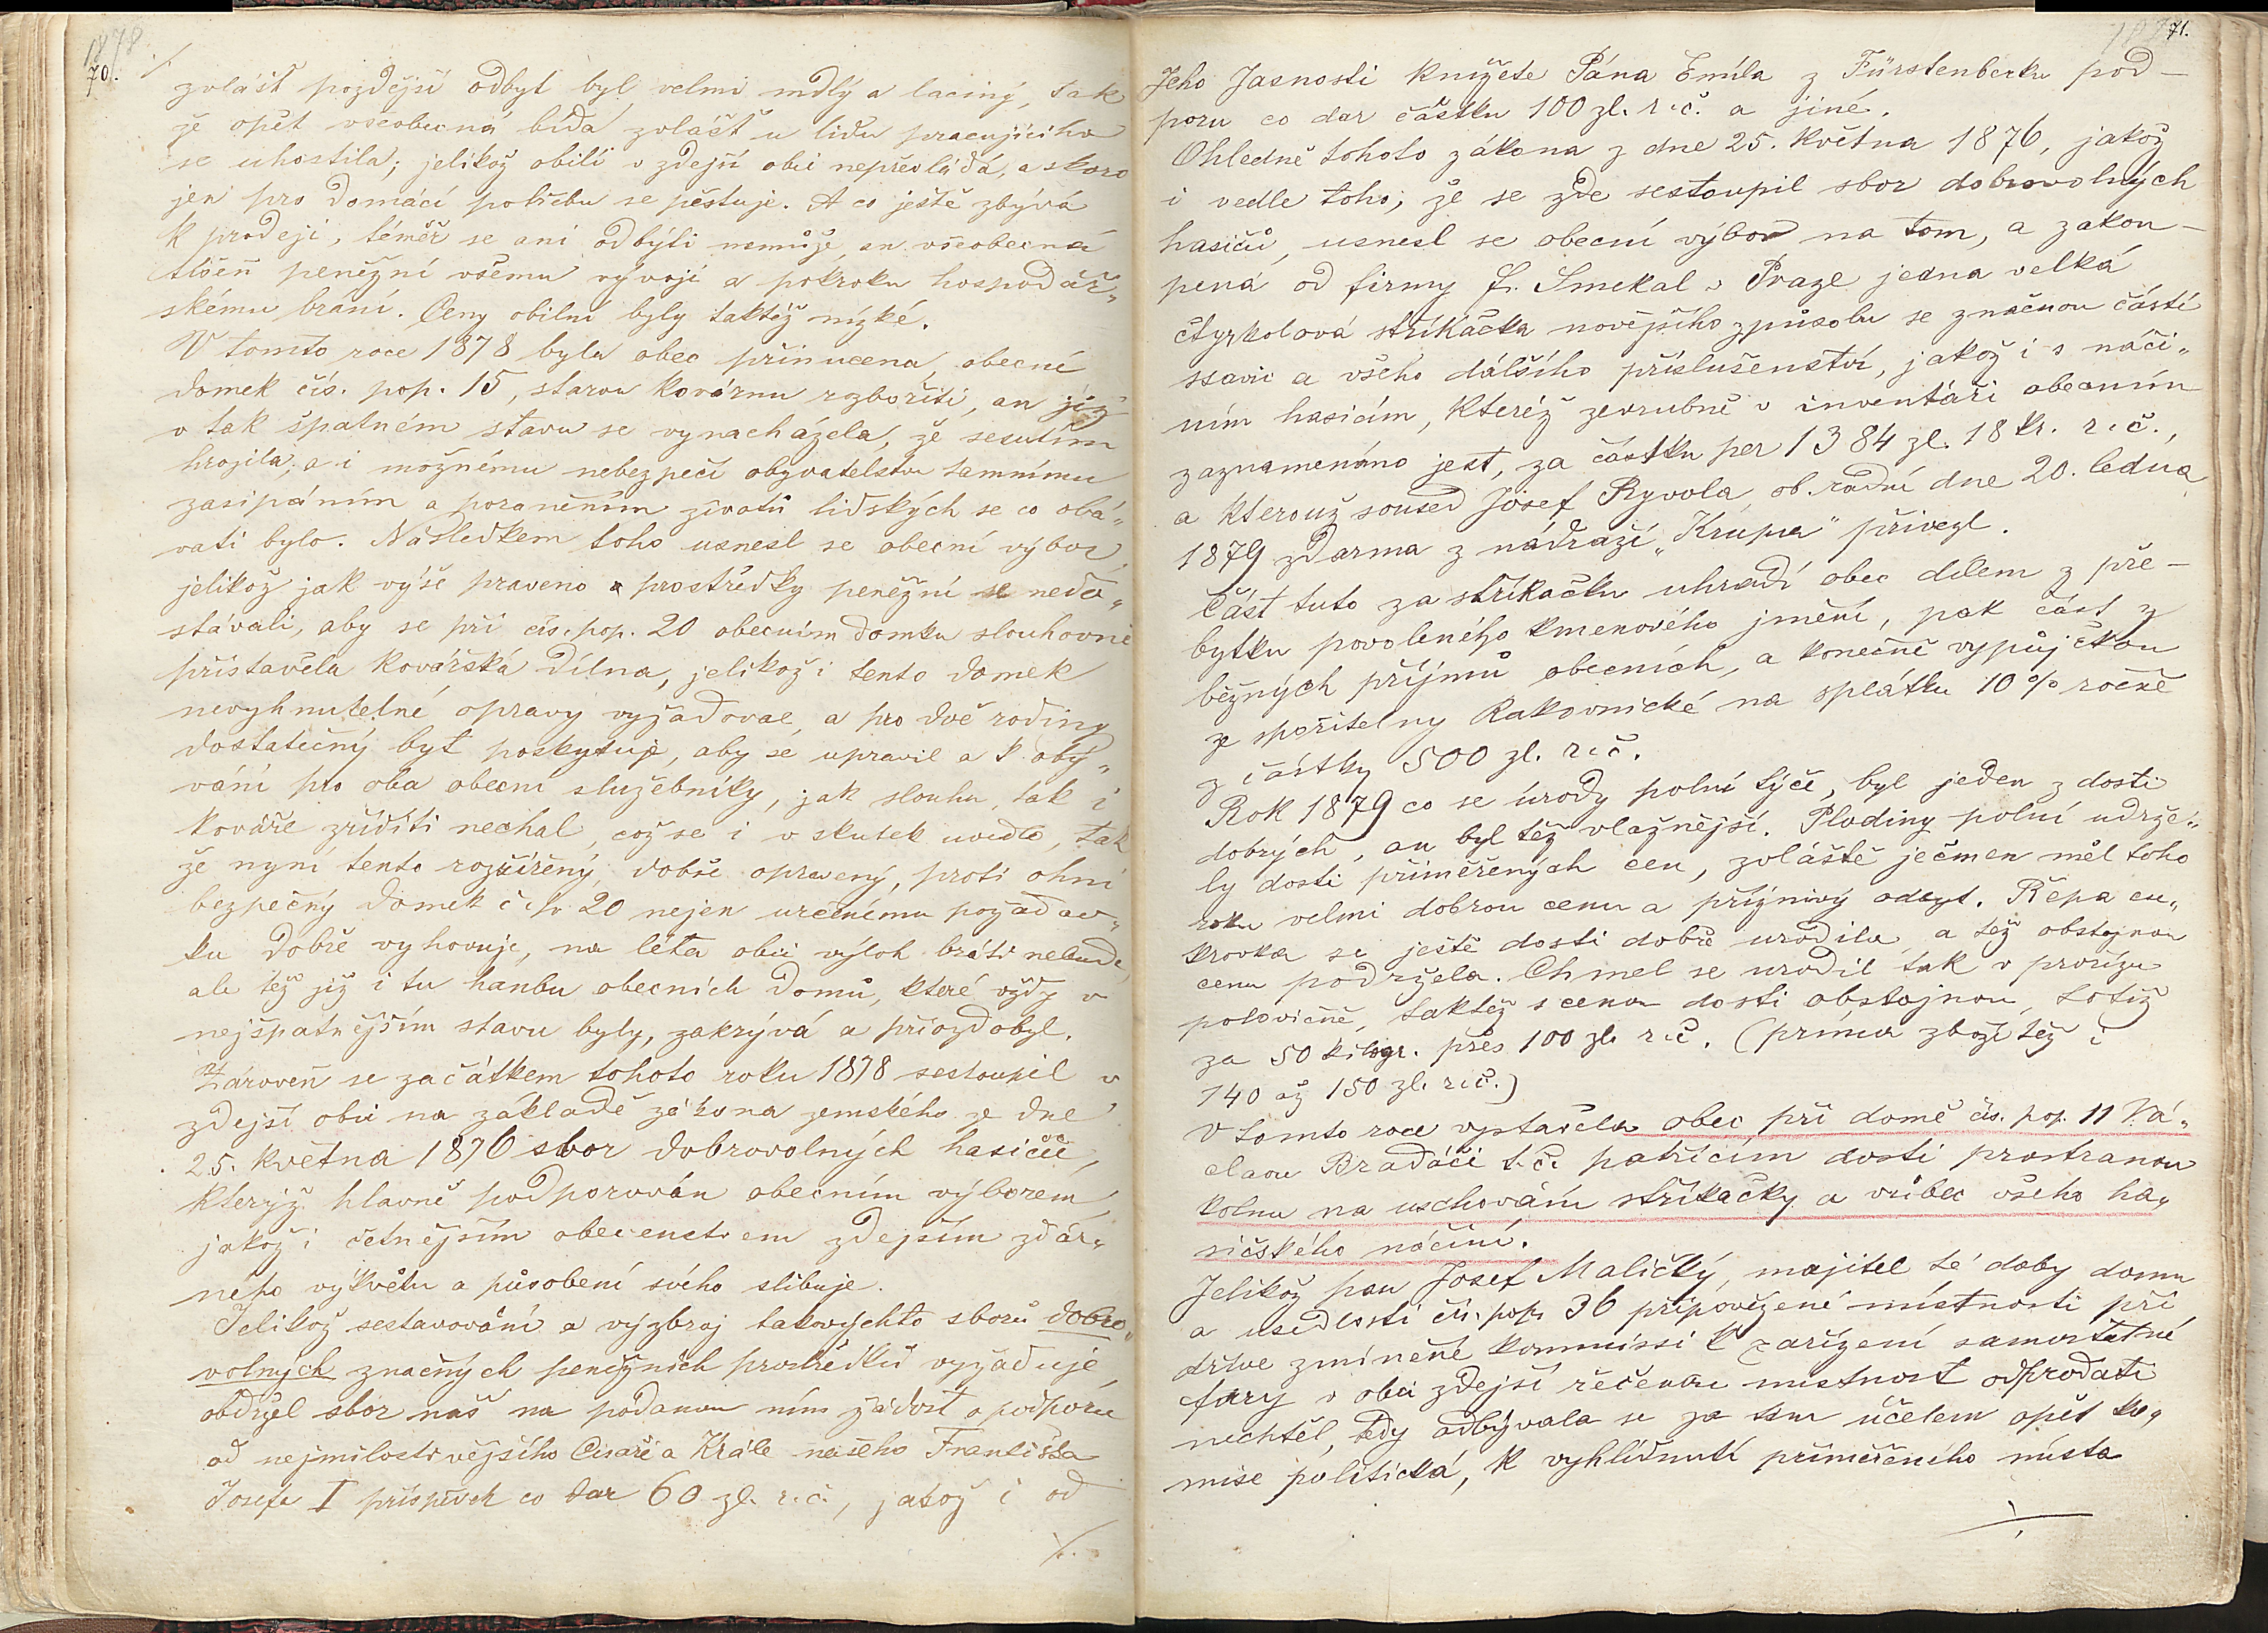 1878.
70. ./.
zvlášť pozdější odbyt byl velmi mdlý a laciný, tak
že opět všeobecná bída zvlášť u lidu pracujícího
se uhostila; jelikož obilí v zdejší obci nepřevládá, a skoro
jen pro domácí potřebu se pěstuje. A co ještě zbývá
k prodeji, téměř se ani odbýti nemůže, an všeobecná
tíseň peněžní všemu vývoji a pokroku hospodář„
skému brání. Ceny obilní byly taktéž nízké.
V tomto roce 1878 byla obec přinucena, obecní
domek čís. pop. 15, starou kovárnu rozbořiti, an již
v tak špatném stavu se vynacházela, že sesutím
hrozila, a i možnému nebezpečí obyvatelstvu tamnímu
zasipáním a poraněním životů lidských se co obá„
vati bylo. Následkem toho usnesl se obecní výbor,
jelikož jak výše praveno prostředky peněžní se nedo„
stávali, aby se při čís. pop. 20 obecním domku slouhovně
přistavěla kovářská dílna, jelikož i tento domek
nevyhnutelné opravy vyžadoval, a pro dvě rodiny
dostatečný byt poskytuje, aby se upravil a k obý„
vání pro oba obecní služebníky, jak slouhu, tak i
kováře zříditi nechal, což se i v skutek uvedlo, tak
že nyní tento rozšířený, dobře opravený, proti ohni
bezpečný domek č. p. 20 nejen určenému požadav„
ku dobře vyhovuje, na léta obci výloh bráti nebude,
ale též již i tu hanbu obecních domů, které vždy v
nejšpatnějším stavu byly, zakrývá a přiozdobyl.
Zároveň se začátkem tohoto roku 1878 sestoupil v
zdejší obci na základě zákona zemského ze dne
25. května 1876 sbor dobrovolných hasičů,
kterýž hlavně podporován obecním výborem,
jakož i četnějším obecenstvem zdejším zdár„
ného výkvětu a působení svého slibuje.
Jelikož sestavování a výzbroj takovýchto sborů dobro„
volných značných peněžních prostředků vyžaduje,
obdržel sbor náš na podanou ním žádost o podporu
od nejmilostivějšího Císaře a Krále našeho Františka
Josefa I příspěvek co dar 60 zl. r. č., jakož i od
./.
71.
Jeho Jasnosti knížete Pána Emila z Fürstenberku pod-
poru co dar částku 100 zl. r. č. a jiné.
Ohledně tohoto zákona z dne 25. května 1876, jakož
i vedle toho, že se zde sestoupil sbor dobrovolných
hasičů, usnesl se obecní výbor na tom, a zakou-
pená od firmy F. Smekal v Praze jedna velká
čtyrkolová stříkačka novějšího způsobu se značnou částí
ssavic a všeho dálšího příslušenství, jakož i s náči„
ním hasicím, kteréž zevrubně v inventáři obecním
zaznamenáno jest, za částku per 1384 zl. 18 kr. r. č.,
a kterouž soused Josef Ryvola ob. radní dne 20. ledna
1879 zdarma z nádraží „Krupa“ přivezl.
Část tuto za stříkačku uhradí obec dílem z pře-
bytku povoleného kmenového jmění, pak část z
běžných příjmů obecních, a konečně vypůjčkou
ze spořitelny Rakovnické na splátku 10% ročně
z částky 500 zl. r. č.
Rok 1879 co se úrody polní týče, byl jeden z dosti
dobrých, an byl též vlažnější. Plodiny polní udrže„
ly dosti přiměřených cen, zvláště ječmen měl toho
roku velmi dobrou cenu a příznivý odbyt. Řepa cu„
krovka se ještě dosti dobře urodila a též obstojnou
cenu podržela. Chmel se urodil tak v průřízu
polovičně, taktéž s cenou dosti obstojnou, totiž
za 50 kilogr. přes 100 zl. r. č. (prima zboží též i
140 až 150 zl. r. č.)
V tomto roce vystavěla obec při domě čís. pop. 11 Vá„
clavu Bradáči t. č. patřícím dosti prostranou
kolnu na uschování stříkačky a vůbec všeho ha„
sičského náčiní.
Jelikož pan Josef Maličký, majitel té doby domu
a usedlosti čís. pop. 36 připovězené místnosti při
dříve zmíněné kommissi k zařízení samostatné
fary v obci zdejší řečenou místnost odprodati
nechtěl, tedy odbývala se za tím účelem opět ko„
mise politická, k vyhlídnutí přiměřeného místa
./.